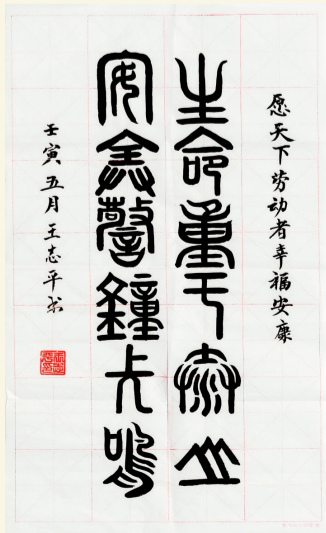 愿天下劳动者幸福安康
生命重于泰山
安全警钟长鸣
壬寅五月王志平书